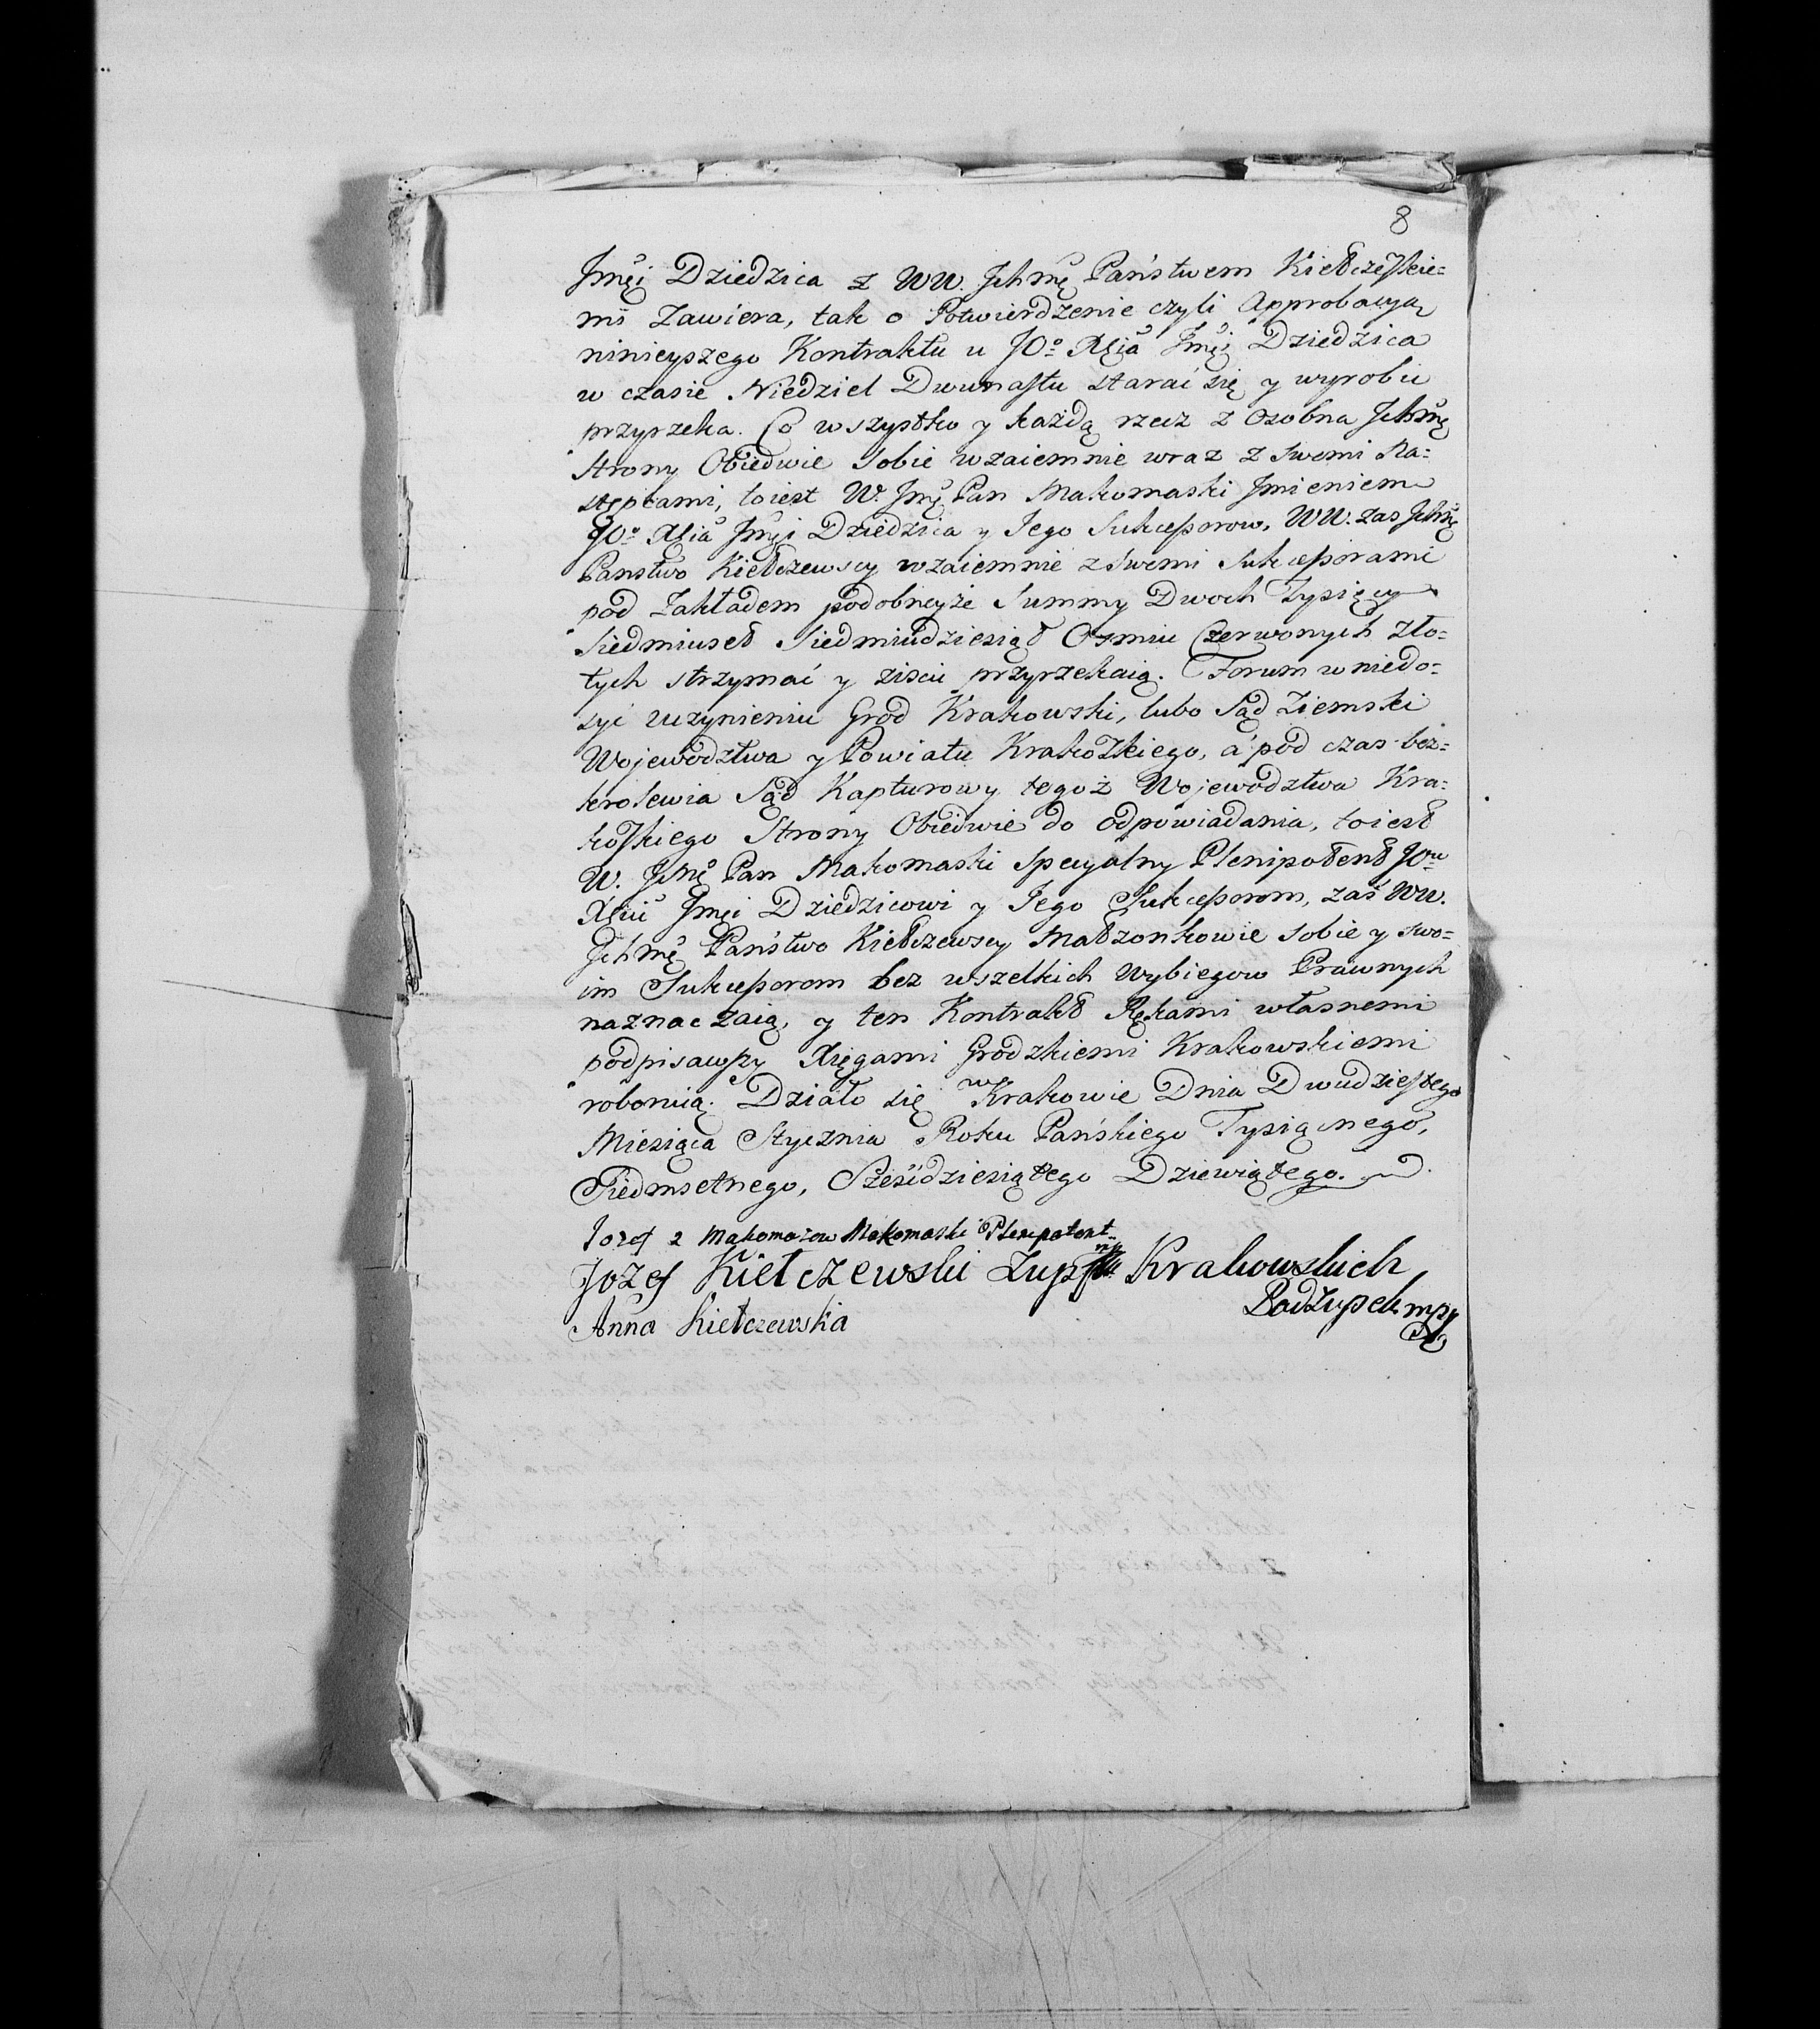 8
Jmći Dziedzica z WW. Jchmć Państwem Kiełczeſkie=
mi Zawiera, tak o Potwierdzenie czyli Approbacyą
ninieyszego Kontraktu u JO° Xcia Jmći Dziedzica
w czasie Niedziel Dwunaſtu starać się y wyrobić
przyrzeka. Co wszystko y każdą rzecz z osobna Jchmć
Strony Obiedwie Sobie wzaiemnie wraz z Swemi Na=
stępcami, toiest W. Jmć Pan Makomaski Jmieniem
JO° Xcia Jmći Dziedzica y Jego Sukceſsorow, WW. zas Jchmć
Panstwo Kiełczewscy wzaiemnie z Swemi Sukceſsorami
pod Zakładem podobneyże Summy Dwoch Tysięcy
Siedmiuset Siedmiudziesiąt Osmiu Czerwonych Zło=
tych strzymać y ziscić przyrzekaią. Forum w niedo=
syć uczynieniu Grod Krakowski, lubo Sąd Ziemski
Wojewodztwa y Powiatu Krakoſkiego, a pod czas bez=
krolewia Sąd Kapturowy tegoż Wojewodztwa Kra=
koſkiego Strony Obiedwie do odpowiadania, toiest
W. Jmć Pan Makomaski Specyalny Plenipotent JOu
Xciu Jmći Dziedzicowi y Jego Sukceſsorom, zaś WW.
Jchmć Państwo Kiełczewscy Małzonkowie Sobie y swo=
im Sukceſsorom bez wszelkich Wybiegow Prawnych
naznaczaią, y ten Kontrakt Rękami własnemi
podpisawſzy Xięgami Grodzkiemi Krakowskiemi
roboruią. Działo się w Krakowie Dnia Dwudzieſtego
Miesiąca Stycznia Roku Pańskiego Tysiącnego,
Siedmsetnego, Sześćdziesiątego Dziewiątego.
Jozef z Makomazow Makomaski Plenipotent
Jozef Kiełczewski Zup Krakowskich
Podżupek mpp
Anna Kiełczewska